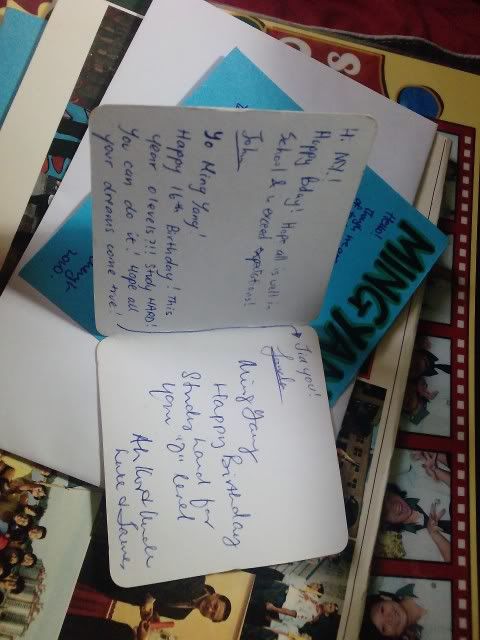 Hi MY!
Happy Bday! Hope all is well in
School & u exceed expectations!
John
Yo Ming Yang!
Happy 16th Birthday! This
year o levels?!! Study HARD!
You can do it! Hope all
your dreams come true!
you!
Ming Yang
Happy Birthday
Study hard for
your 'O' level
MINGYAN
Hello!
2010